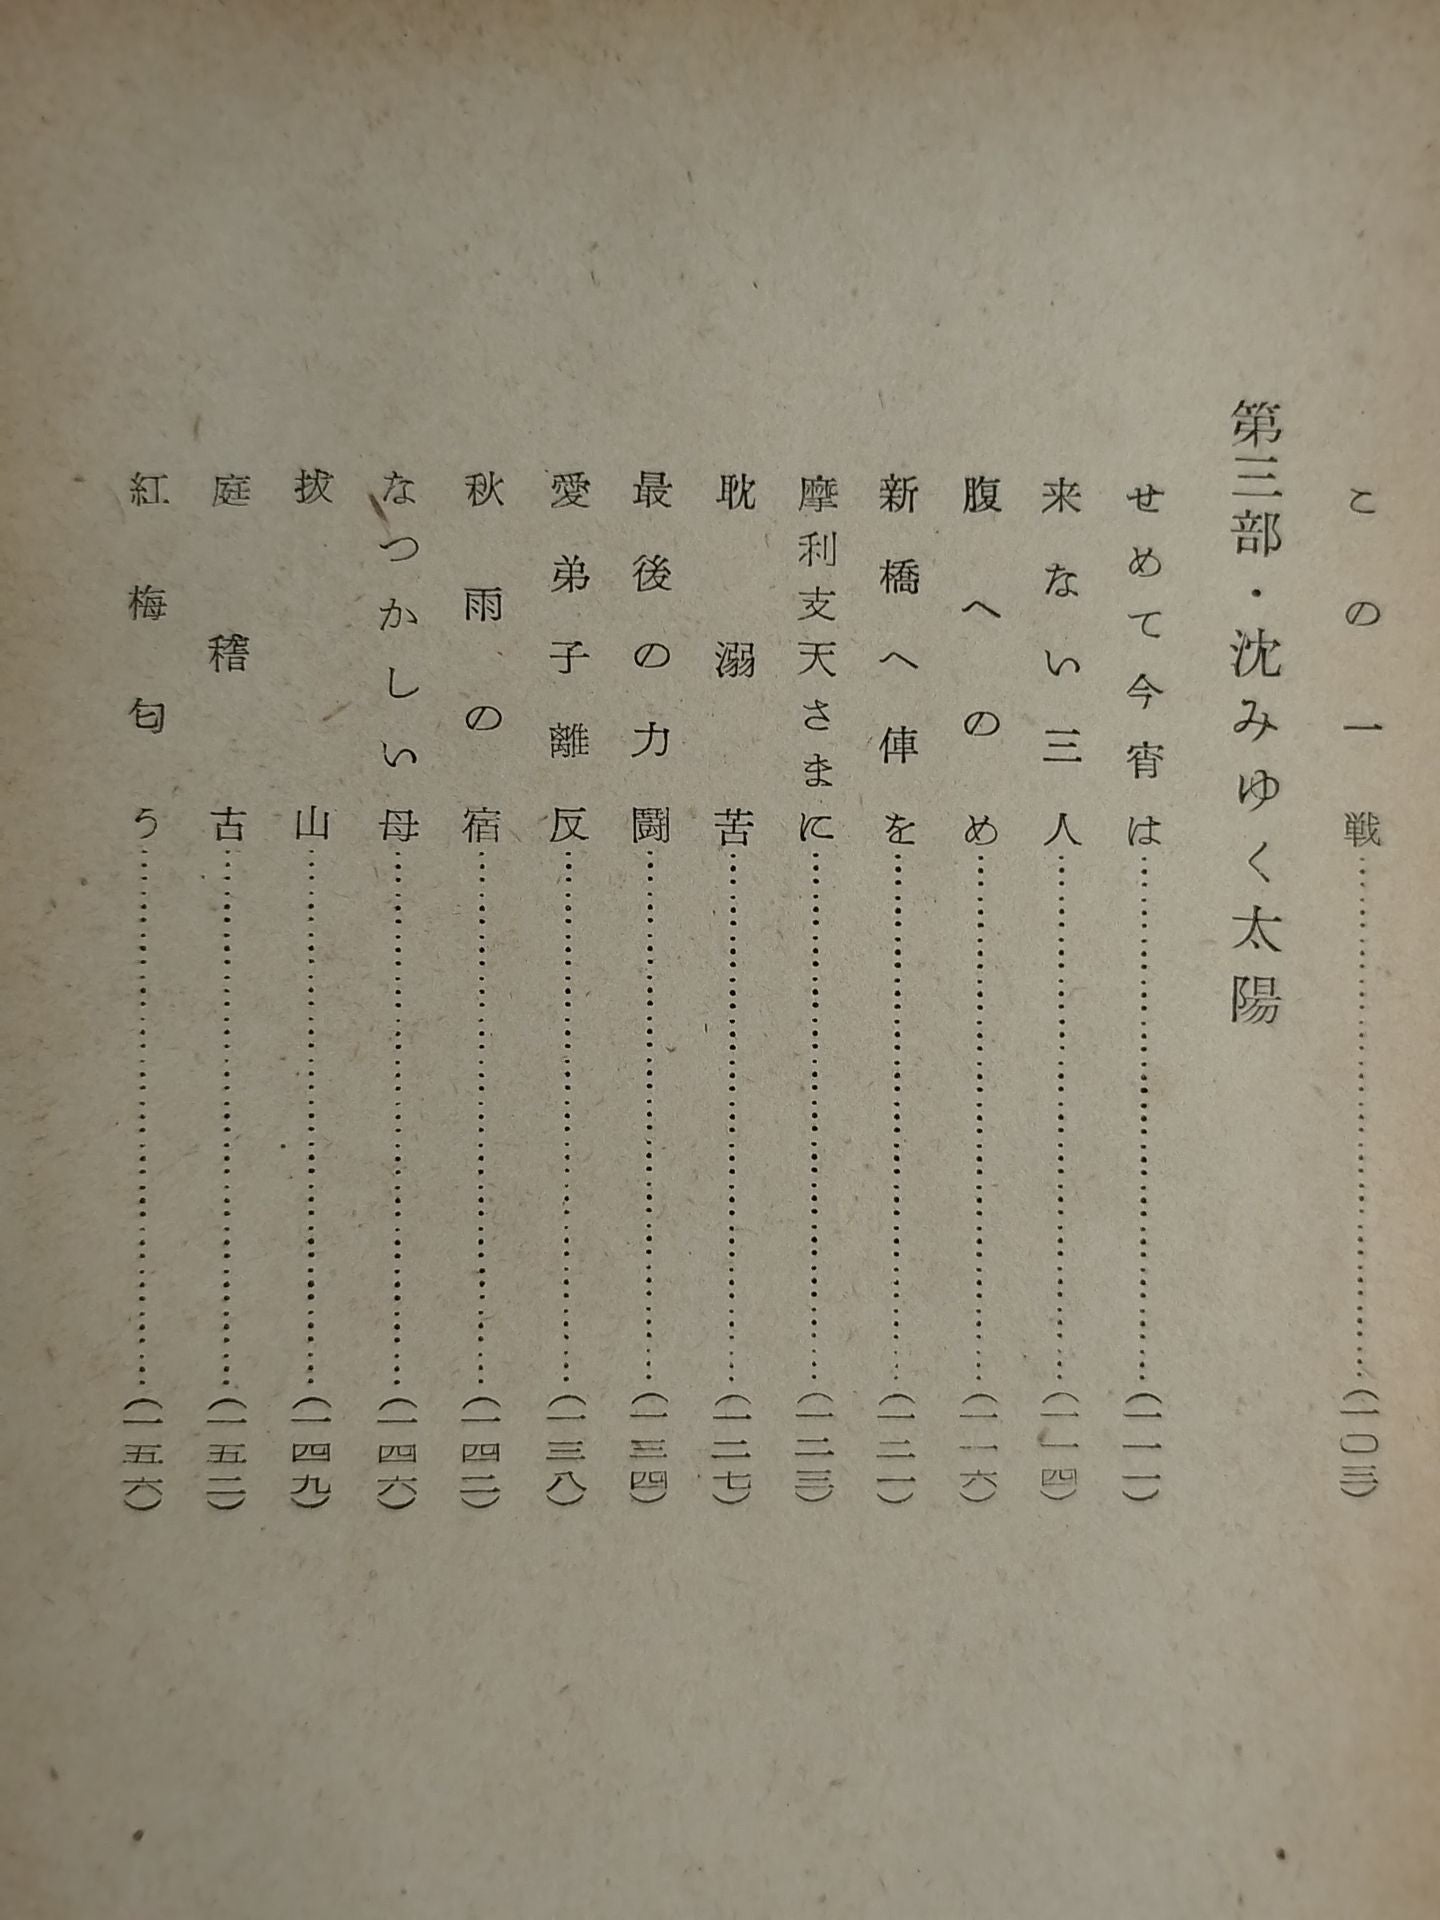 この一戦……………………(一〇三)
第三部・沈みゆく太陽
せめて今宵は……………………(一一一)
来ない三人……………………(一一四)
腹へのめ……………………(一一六)
新橋へ俥を……………………(一二一)
摩利支天さまに……………………(一二三)
耽溺苦……………………(一二七)
最後の力闘……………………(一三四)
愛弟子離反……………………(一三八)
秋雨の宿……………………(一四二)
なつかしい母……………………(一四六)
拔山……………………(一四九)
庭稽古……………………(一五二)
紅梅匂う……………………(一五六)